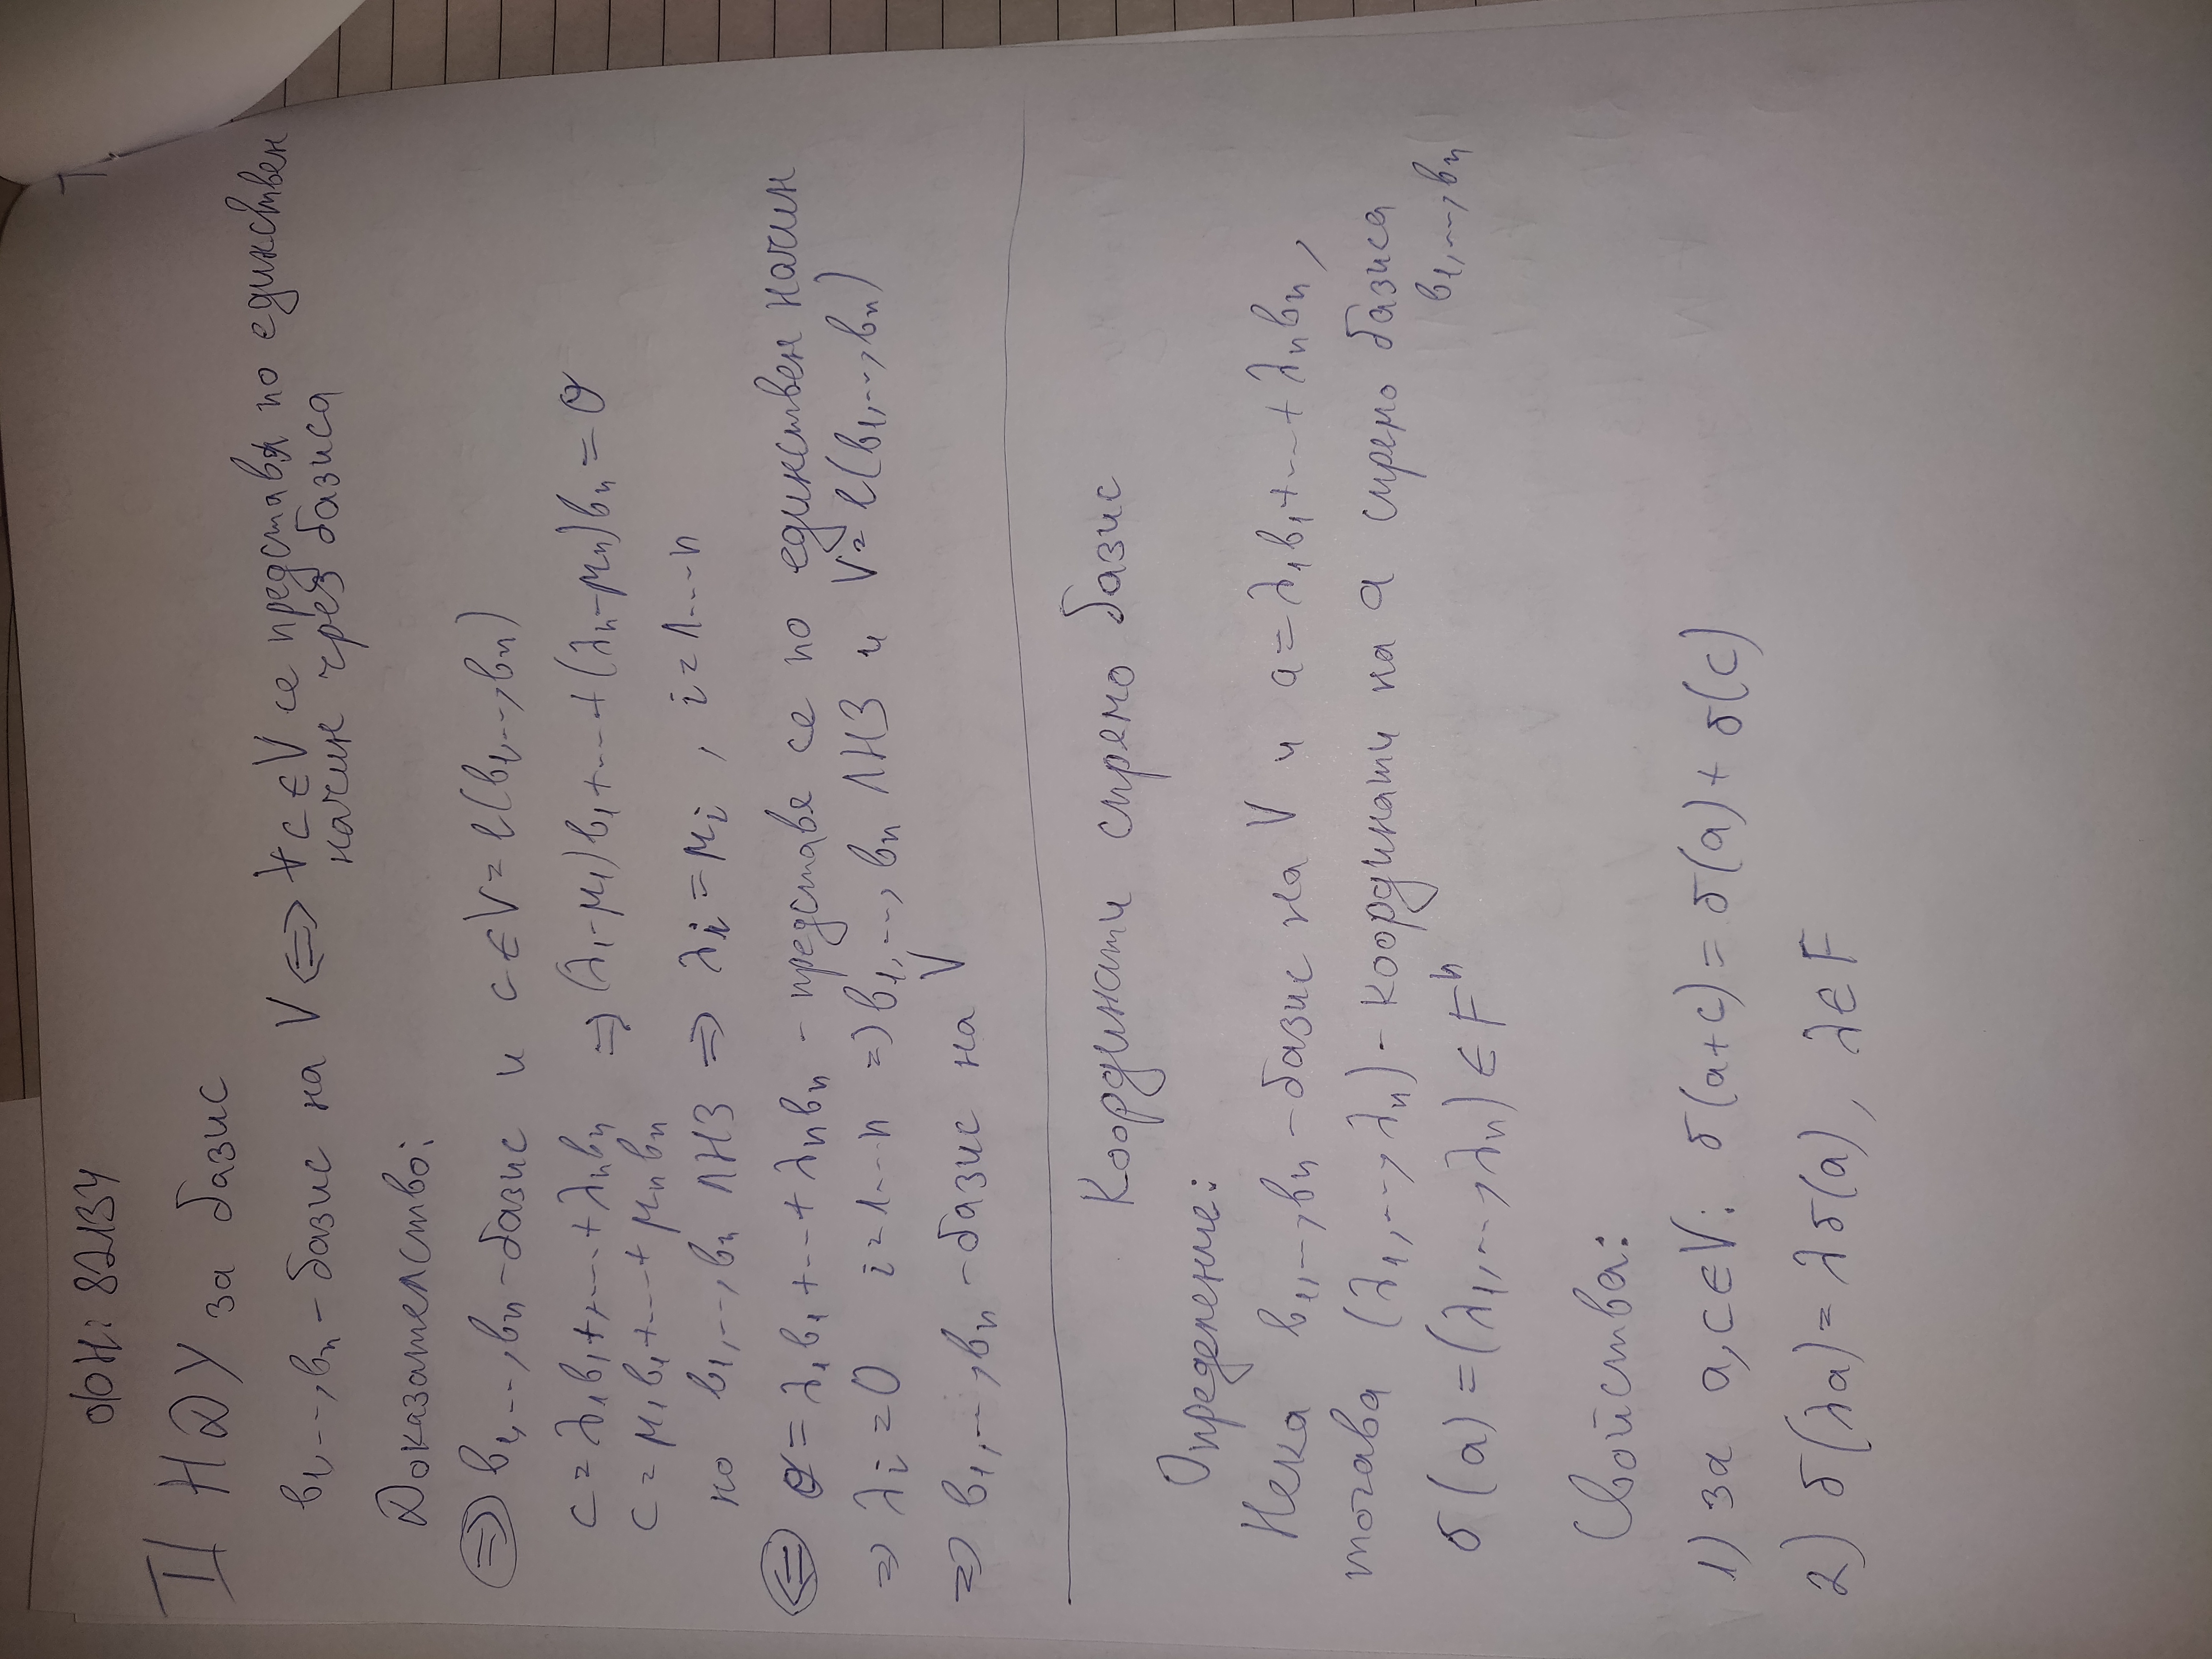 ФН: 82134
II НДУ за базис
b₁,...,bₙ - базис на V <=> ∀c∈V се представя по единствен
начин чрез базиса
Доказателство:
=> b₁,...,bₙ - базис и c∈V = l(b₁,...,bₙ)
c = λ₁b₁+....+λₙbₙ => (λ₁-μ₁)b₁+...+(λₙ-μₙ)bₙ = O
c = μ₁b₁+...+μₙbₙ
но b₁,...,bₙ ЛНЗ => λᵢ = μᵢ , i = 1...n
<= O = λ₁b₁+...+λₙbₙ - представя се по единствен начин
=> λᵢ = 0 i = 1...n => b₁,...,bₙ ЛНЗ и V = l(b₁,...,bₙ)
=> b₁,...,bₙ - базис на V
Координати спрямо базис
Определение:
Нека b₁,...,bₙ - базис на V и a = λ₁b₁+...+λₙbₙ,
тогава (λ₁,...,λₙ) - координати на a спрямо базиса
b₁,...,bₙ
б(a) = (λ₁,...,λₙ) ∈ Fⁿ
Свойства:
1) за a,c∈V: б(a+c) = б(a) + б(c)
2) б(λa) = λб(a), λ∈F